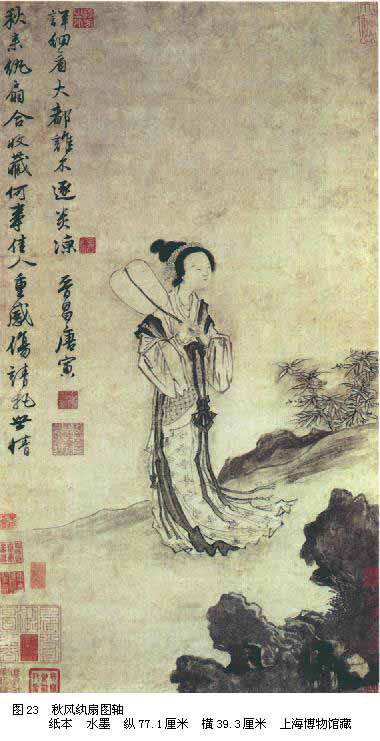 秋來紈扇合收藏何事佳人重感傷請托世情
詳細看大都誰不逐炎涼 晉昌唐寅
图23 秋风纨扇图轴
纸本 水墨 纵77.1厘米 横39.3厘米 上海博物馆藏